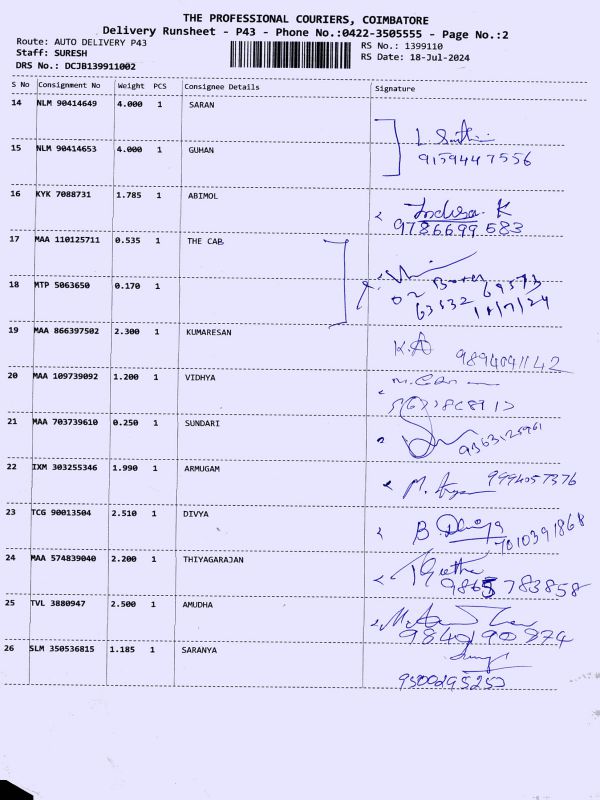 THE PROFESSIONAL COURIERS, COIMBATORE
Delivery Runsheet - P43 - Phone No.:0422-3505555 - Page No.:2
Route: AUTO DELIVERY P43 RS No.: 1399110
Staff: SURESH RS Date: 18-Jul-2024
DRS No.: DCJB139911002
S No Consignment No Weight PCS Consignee Details Signature
14 NLM 90414649 4.000 1 SARAN
15 NLM 90414653 4.000 1 GUHAN
9159447556
16 KYK 7088731 1.785 1 ABIMOL
K
9786699583
17 MAA 110125711 0.535 1 THE CAB
18 MTP 5063650 0.170 1
63532
19 MAA 866397502 2.300 1 KUMARESAN
K.A 9894091142
20 MAA 109739092 1.200 1 VIDHYA
21 MAA 703739610 0.250 1 SUNDARI
9363125961
22 IXM 303255346 1.990 1 ARMUGAM
M. 9994057376
23 TCG 90013504 2.510 1 DIVYA
B Dhivya
7010391868
24 MAA 574839040 2.200 1 THIYAGARAJAN
Geetha
9865783858
25 TVL 3880947 2.500 1 AMUDHA
9840190874
26 SLM 350536815 1.185 1 SARANYA
9500295252